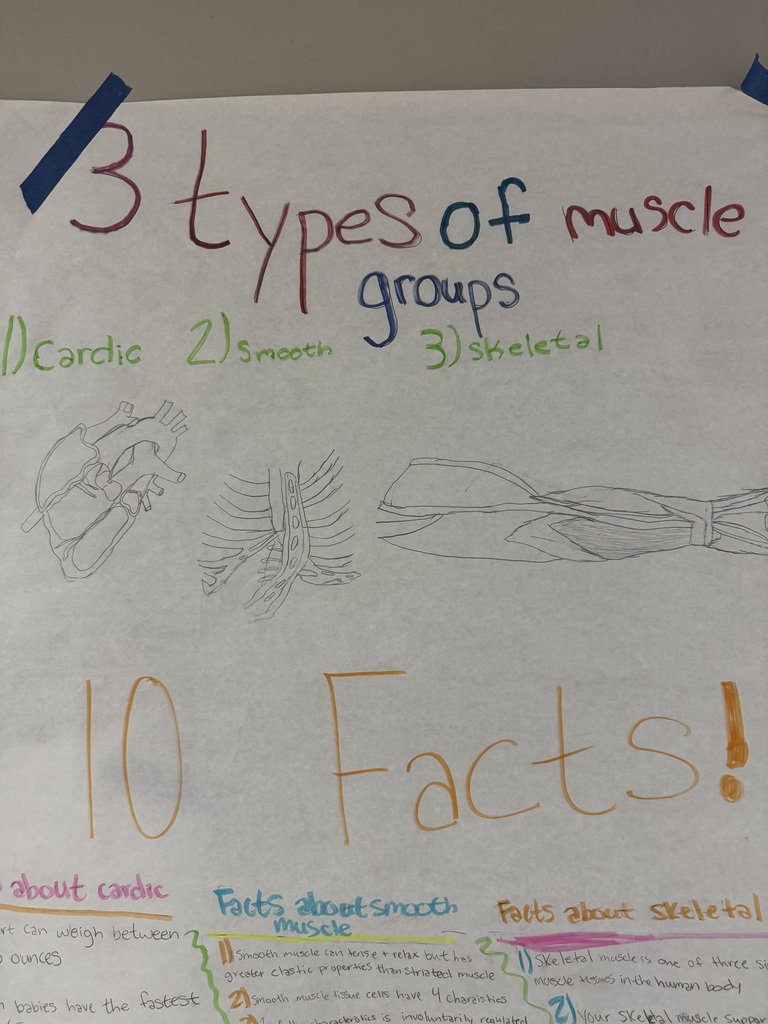 3 types of muscle
groups
1) Cardic 2) Smooth 3) skeletal
10 Facts!
about cardic
can weigh between
ounces
babies have the fastest
Facts about smooth
muscle
1) Smooth muscle can tense + relax but has
greater elastic properties than striated muscle
2) Smooth muscle tissue cells have 4
is involuntarily regulated
Facts about skeletal
1) Skeletal muscle is one of three
muscle in the human body
2) Your skeletal muscle